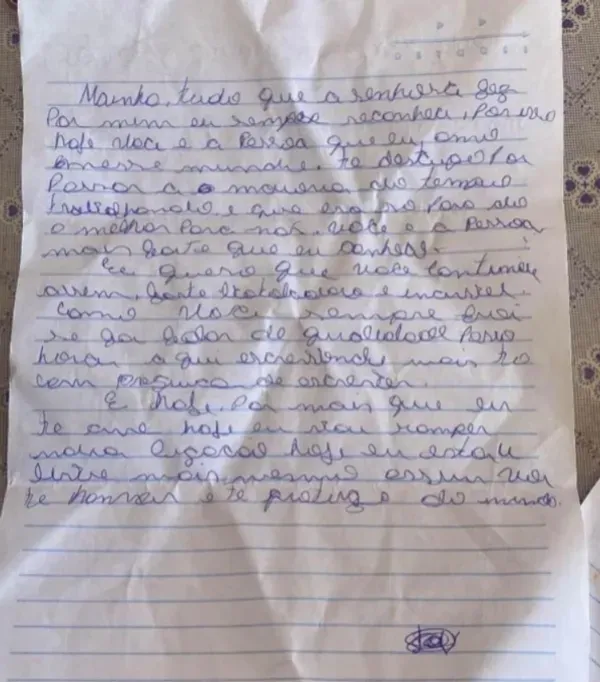 Mainha, tudo que a senhora fez
Por mim eu sempre reconheci, Por isso
hoje voce e a Pessoa que eu amo
nesse mundo. te desculpe Por
Passar a maioria do tempo
trabalhando e que era so Para da
o melhor Para nos. voce e a Pessoa
mais forte que eu conheso.
Eu quero que voce continue
assim, forte trabalhadora e incrivel.
Como voce sempre foi
se for falar de qualidades Passo
horas aqui escrevendo mais to
com preguisa de escrever.
E hoje, Por mais que eu
te amo hoje eu vou romper
nossa ligacao hoje eu estou
livre mais mesmo assim vou
te honrar e te protego do mundo.